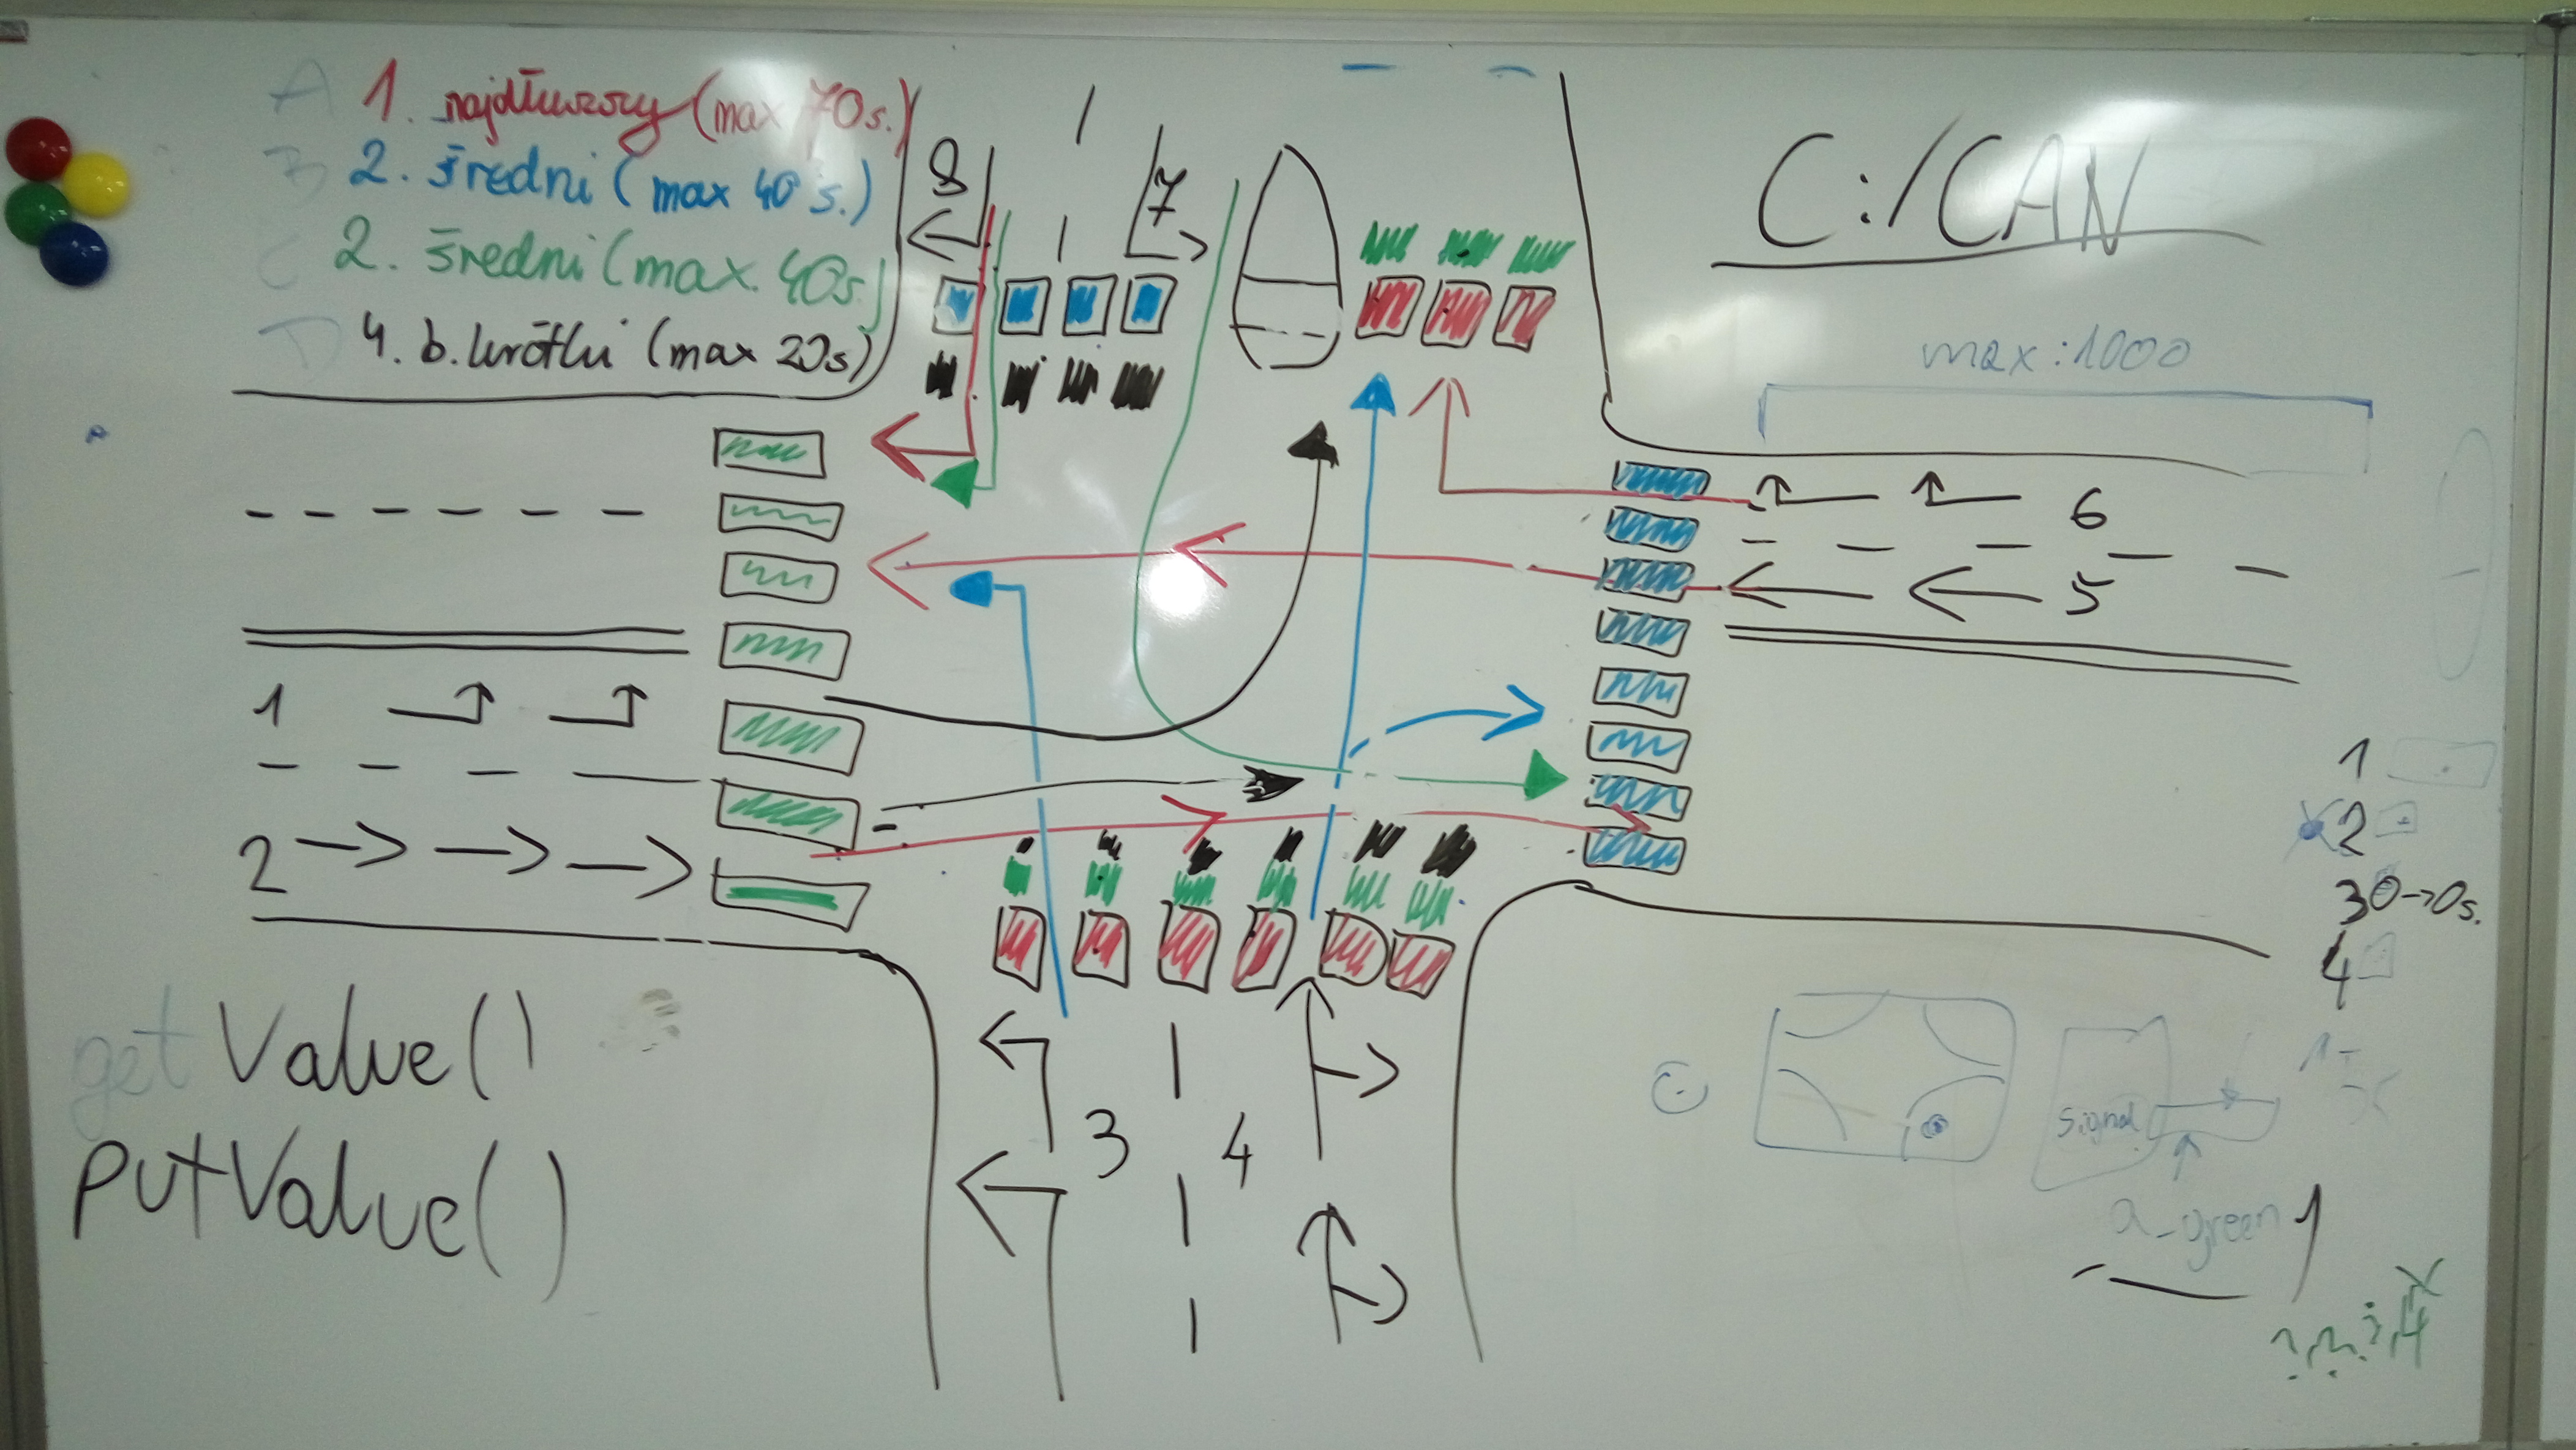 A 1. najdłuższy (max 70s.)
B 2. średni (max 40s.)
C 2. średni (max. 40s)
D 4. b. krótki (max 20s)
8
7
C:/CAN
max:1000
6
5
1
2
1
2
30→0s.
4
getValue()
putValue()
3
4
signal
a_green
1